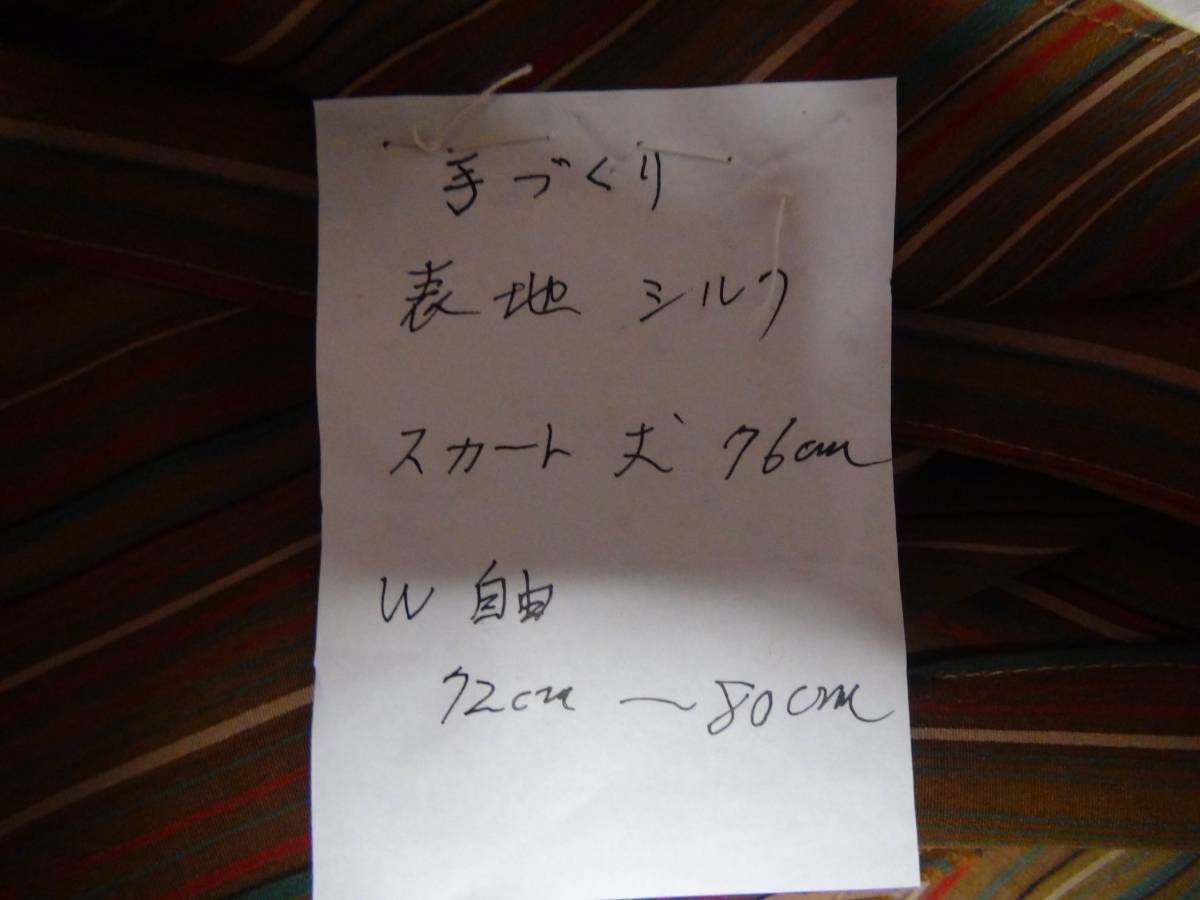 手づくり
表地 シルク
スカート 丈 76cm
W 自由
72cm 〜 80cm